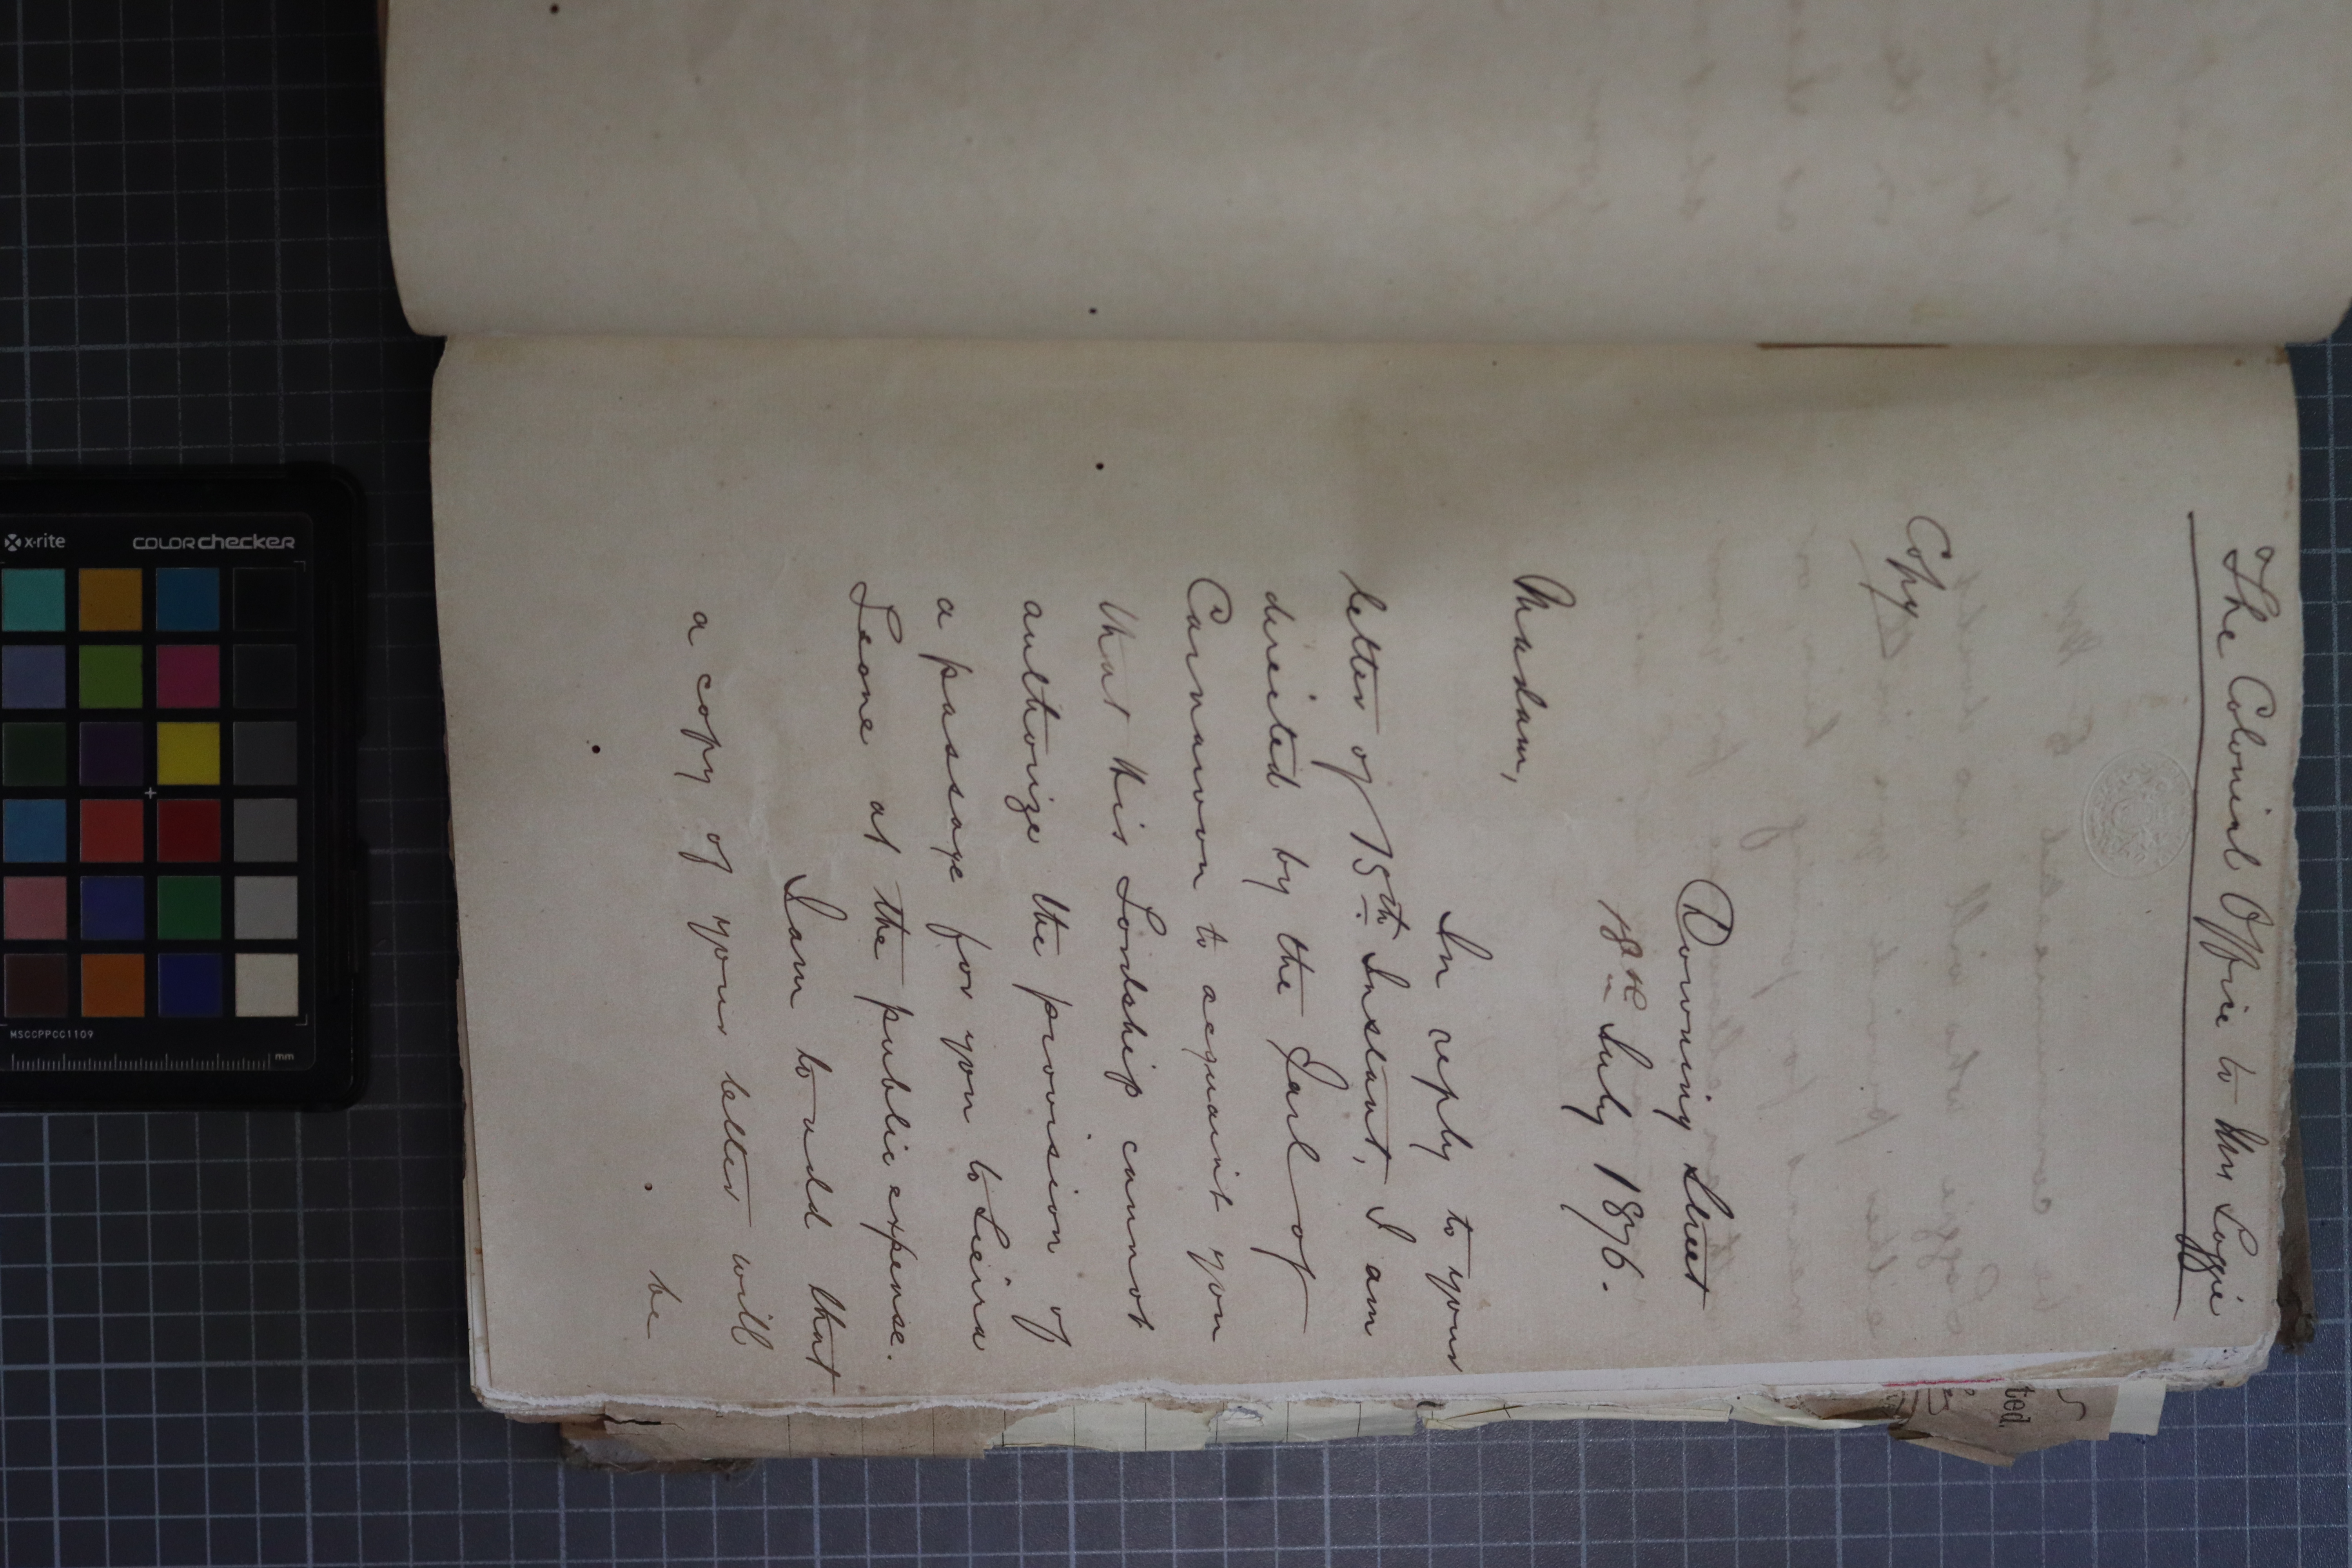 The Colonial Office to Mrs Loggie
Copy
Downing Street
18th July 1876.
Madam,
In reply to your
letter of 15th Instant, I am
directed by the Earl of
Carnarvon to acquaint you
that His Lordship cannot
authorize the provision of
a passage for you to Sierra
Leone at the public expense.
I am to add that
a copy of your letter will
be
x·rite
COLORchecker
MSCCPPCC1109
mm
ted.